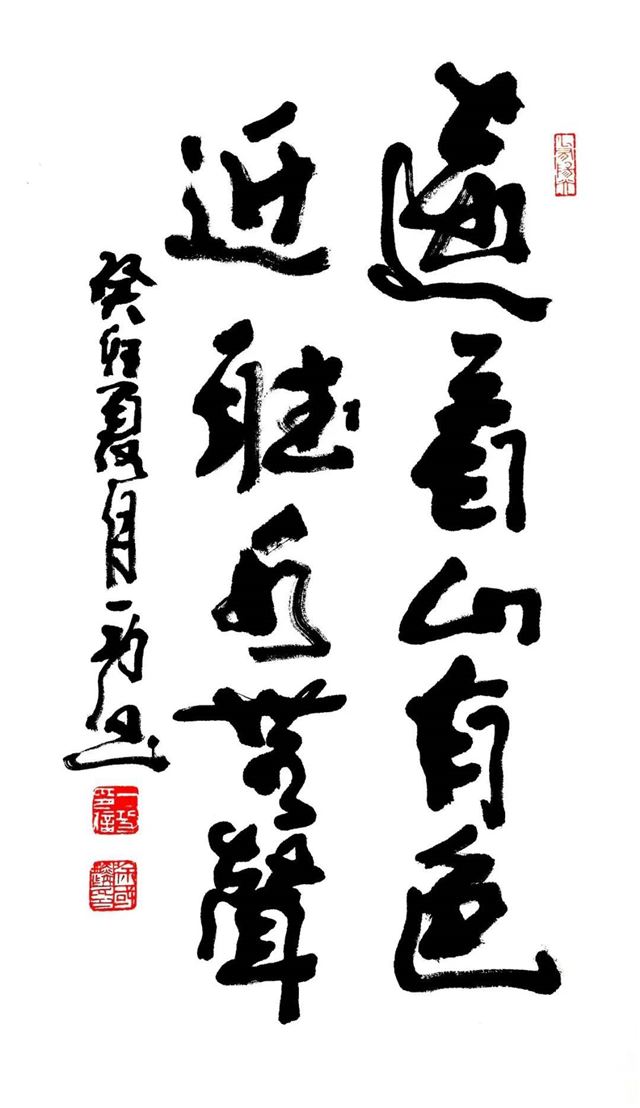 遠看山有色
近聽水無聲
癸卯夏月一